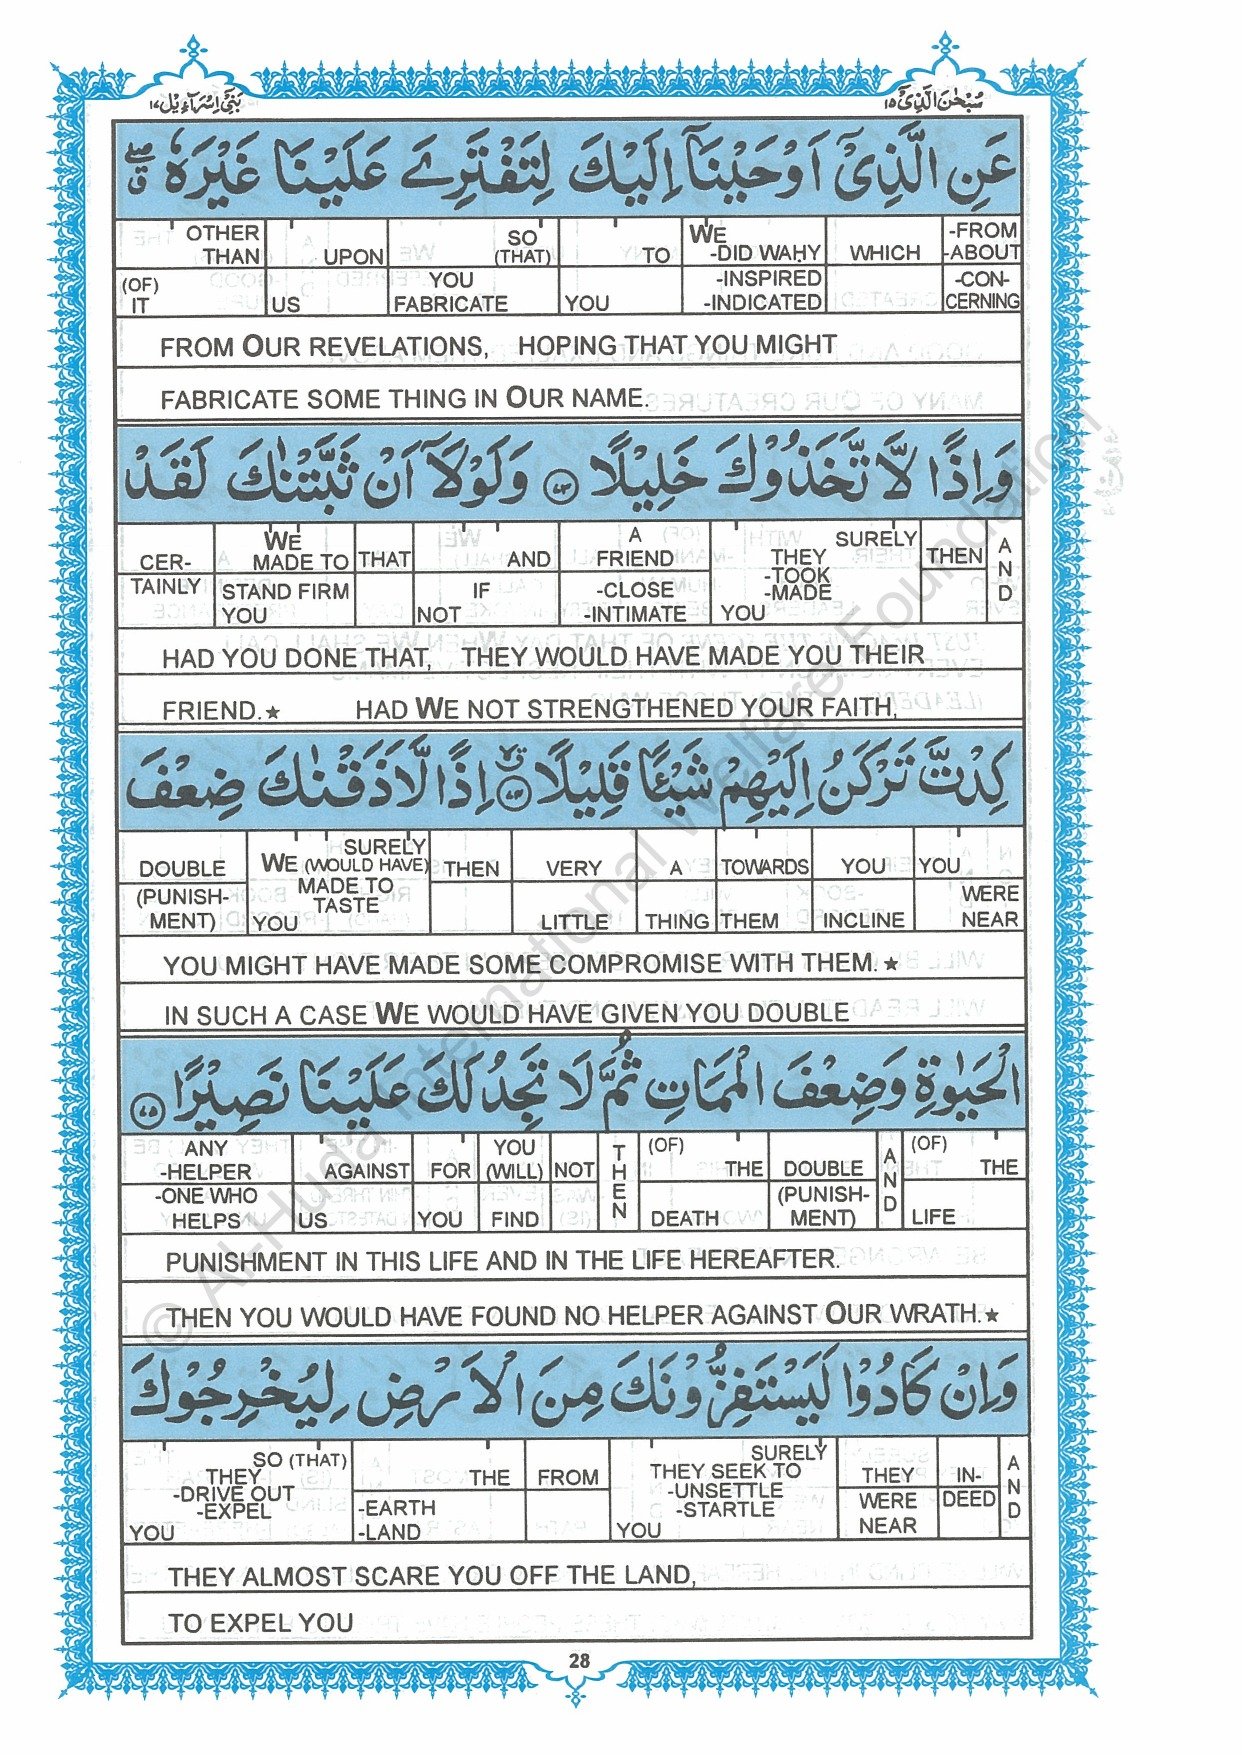 بَنِيْٓ اِسْرَآءِيْل ١٧ سُبْحٰنَ الَّذِيْٓ ١٥
عَنِ الَّذِيْٓ اَوْحَيْنَآ اِلَيْكَ لِتَفْتَرِيَ عَلَيْنَا غَيْرَهٗ ۖق
OTHER THAN | UPON | SO (THAT) | TO | WE -DID WAḤY | WHICH | -FROM -ABOUT
(OF) IT | US | YOU FABRICATE | YOU | -INSPIRED -INDICATED | -CON- CERNING
FROM OUR REVELATIONS, HOPING THAT YOU MIGHT
FABRICATE SOME THING IN OUR NAME.
وَاِذًا لَّا تَّخَذُوْكَ خَلِيْلًا ۝٧٣ وَلَوْلَآ اَنْ ثَبَّتْنٰكَ لَقَدْ
CER- TAINLY | WE MADE TO STAND FIRM YOU | THAT | AND IF NOT | A FRIEND -CLOSE -INTIMATE | SURELY THEY -TOOK -MADE YOU | THEN | AND
HAD YOU DONE THAT, THEY WOULD HAVE MADE YOU THEIR
FRIEND.★ HAD WE NOT STRENGTHENED YOUR FAITH,
كِدْتَّ تَرْكَنُ اِلَيْهِمْ شَيْـًٔا قَلِيْلًا ۝٧٤ اِذًا لَّاَذَقْنٰكَ ضِعْفَ
DOUBLE | SURELY WE (WOULD HAVE) MADE TO TASTE | THEN | VERY | A | TOWARDS | YOU | YOU
(PUNISH- MENT) | YOU | LITTLE | THING | THEM | INCLINE | WERE NEAR
YOU MIGHT HAVE MADE SOME COMPROMISE WITH THEM.★
IN SUCH A CASE WE WOULD HAVE GIVEN YOU DOUBLE
الْحَيٰوةِ وَضِعْفَ الْمَمَاتِ ثُمَّ لَا تَجِدُ لَكَ عَلَيْنَا نَصِيْرًا ۝٧٥
ANY -HELPER | AGAINST | FOR | YOU (WILL) | NOT | THEN | (OF) THE | DOUBLE | AND | (OF) THE
-ONE WHO HELPS | US | YOU | FIND | DEATH | (PUNISH- MENT) | LIFE
PUNISHMENT IN THIS LIFE AND IN THE LIFE HEREAFTER.
THEN YOU WOULD HAVE FOUND NO HELPER AGAINST OUR WRATH.★
وَاِنْ كَادُوْا لَيَسْتَفِزُّوْنَكَ مِنَ الْاَرْضِ لِيُخْرِجُوْكَ
SO (THAT) THEY -DRIVE OUT -EXPEL YOU | THE -EARTH -LAND | FROM | SURELY THEY SEEK TO -UNSETTLE -STARTLE YOU | THEY WERE NEAR | IN- DEED | AND
THEY ALMOST SCARE YOU OFF THE LAND,
TO EXPEL YOU
28
© Al-Huda International Welfare Foundation